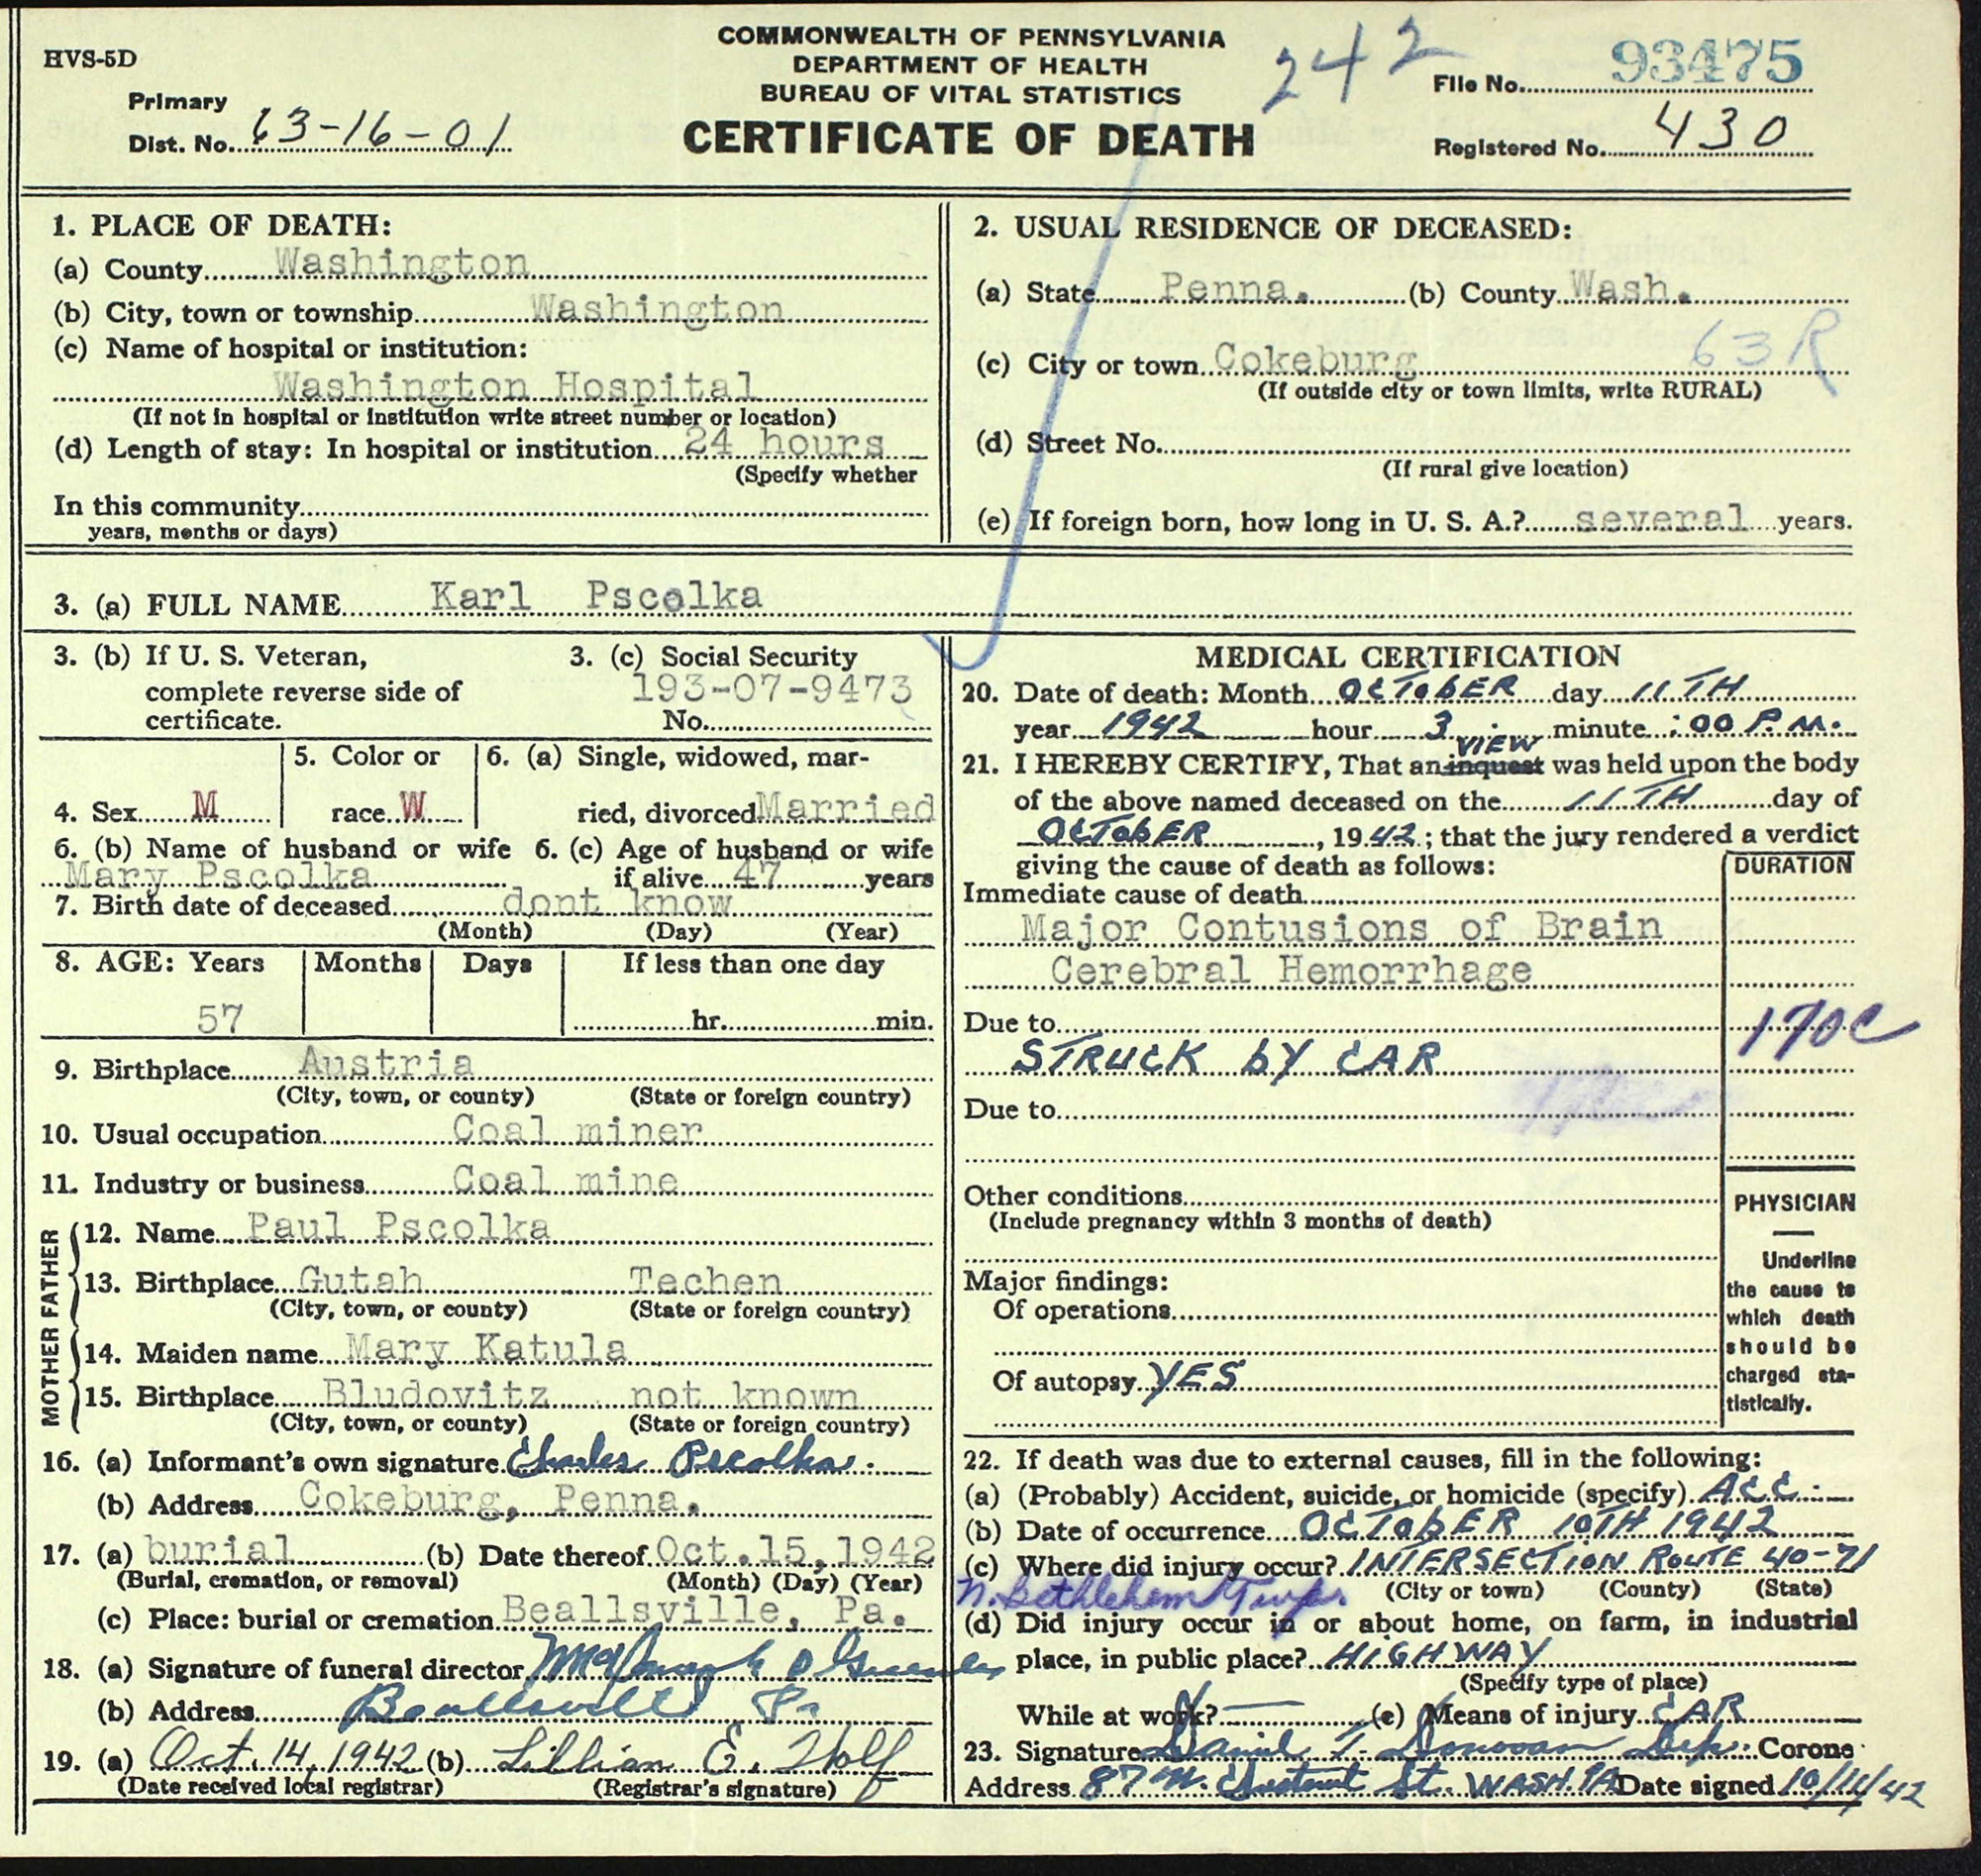 HVS-5D
COMMONWEALTH OF PENNSYLVANIA
DEPARTMENT OF HEALTH
BUREAU OF VITAL STATISTICS
CERTIFICATE OF DEATH
242
Primary
Dist. No. 63-16-01
File No. 93475
Registered No. 430
1. PLACE OF DEATH:
(a) County Washington
(b) City, town or township Washington
(c) Name of hospital or institution:
Washington Hospital
(If not in hospital or institution write street number or location)
(d) Length of stay: In hospital or institution 24 hours
(Specify whether
In this community
years, months or days)
2. USUAL RESIDENCE OF DECEASED:
(a) State Penna. (b) County Wash.
63R
(c) City or town Cokeburg
(If outside city or town limits, write RURAL)
(d) Street No.
(If rural give location)
(e) If foreign born, how long in U. S. A.? several years.
3. (a) FULL NAME Karl Pscolka
3. (b) If U. S. Veteran,
complete reverse side of
certificate.
3. (c) Social Security
193-07-9473
No.
4. Sex M
5. Color or
race W
6. (a) Single, widowed, mar-
ried, divorced Married
6. (b) Name of husband or wife
Mary Pscolka
6. (c) Age of husband or wife
if alive 47 years
7. Birth date of deceased dont know
(Month) (Day) (Year)
8. AGE: Years Months Days If less than one day
57 hr. min.
9. Birthplace Austria
(City, town, or county) (State or foreign country)
10. Usual occupation Coal miner
11. Industry or business Coal mine
FATHER
12. Name Paul Pscolka
13. Birthplace Gutah Techen
(City, town, or county) (State or foreign country)
MOTHER
14. Maiden name Mary Katula
15. Birthplace Bludovitz not known
(City, town, or county) (State or foreign country)
16. (a) Informant's own signature Charles Pscolka.
(b) Address Cokeburg, Penna.
17. (a) burial (b) Date thereof Oct. 15, 1942
(Burial, cremation, or removal) (Month) (Day) (Year)
(c) Place: burial or cremation Beallsville, Pa.
18. (a) Signature of funeral director
(b) Address Beallsville Pa
19. (a) Oct. 14, 1942 (b) Lillian E. Holf
(Date received local registrar) (Registrar's signature)
MEDICAL CERTIFICATION
20. Date of death: Month OCTOBER day 11TH
year 1942 hour 3 minute :00 P.M.
VIEW
21. I HEREBY CERTIFY, That an inquest was held upon the body
of the above named deceased on the 11TH day of
OCTOBER, 1942; that the jury rendered a verdict
giving the cause of death as follows:
DURATION
Immediate cause of death
Major Contusions of Brain
Cerebral Hemorrhage
Due to
170C
STRUCK BY CAR
Due to
Other conditions
(Include pregnancy within 3 months of death)
Major findings:
Of operations
Of autopsy YES
PHYSICIAN
Underline
the cause to
which death
should be
charged sta-
tistically.
22. If death was due to external causes, fill in the following:
(a) (Probably) Accident, suicide, or homicide (specify) ACC.
(b) Date of occurrence OCTOBER 10TH 1942
(c) Where did injury occur? INTERSECTION ROUTE 40-71
N. Bethlehem Twp. (City or town) (County) (State)
(d) Did injury occur in or about home, on farm, in industrial
place, in public place? HIGHWAY
(Specify type of place)
While at work? (e) Means of injury CAR
23. Signature Daniel T. Donovan Dep. Corone
Address 87 N. Chestnut St. WASH. PA Date signed 10/11/42